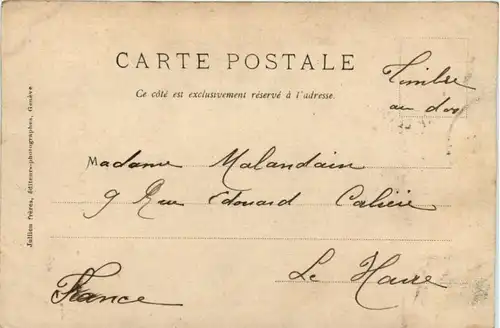 CARTE POSTALE
Timbre
au dos
Ce côté est exclusivement réservé à l'adresse.
Madame Malandain
9 Rue Edouard
Le Havre
France
Jullien frères, éditeurs-photographes, Genève